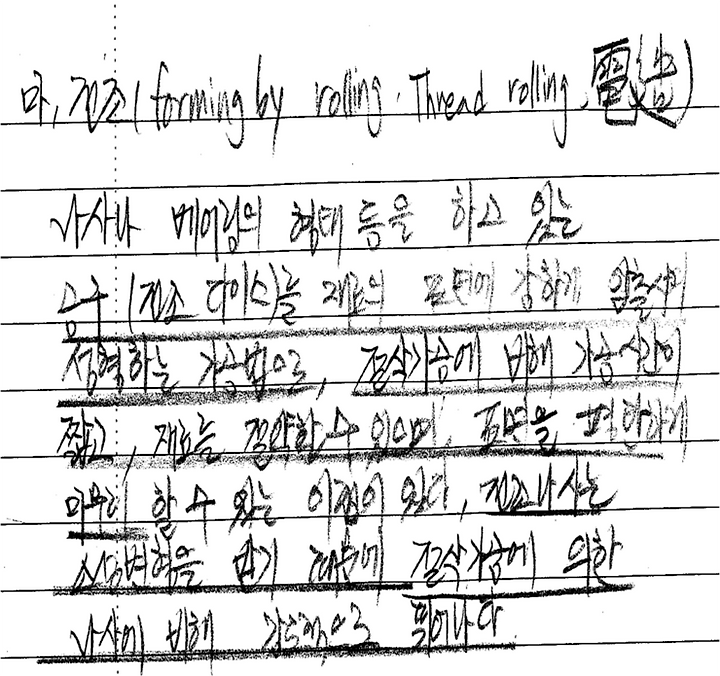 마, 전조(forming by rolling. Thread rolling, 電造)
나사나 베어링의 형태 등을 하고 있는
공구 (전조 다이스)를 재료의 표면에 강하게 압출시켜
성형하는 가공법으로, 절삭가공에 비해 가공시간이
짧고, 재료를 절약할 수 있으며, 표면을 편안하게
마무리 할 수 있는 이점이 있다, 전조나사는
소성변형을 받기 때문에 절삭가공에 의한
나사에 비해 강도적으로 뛰어나다